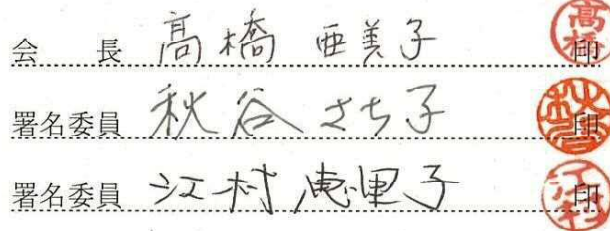 会長 髙橋 亜美子 印
署名委員 秋谷 さち子 印
署名委員 江村 恵里子 印